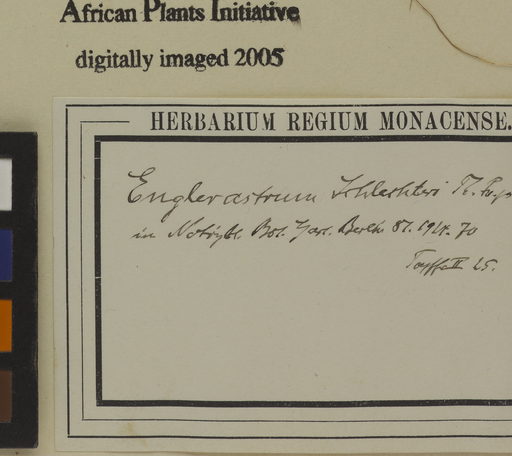 African Plants Initiative
digitally imaged 2005
HERBARIUM REGIUM MONACENSE.
Englerastrum Schlechteri Th. Fr.
in Notizbl. Bot. Gart. Berlin 1924. 70
25.